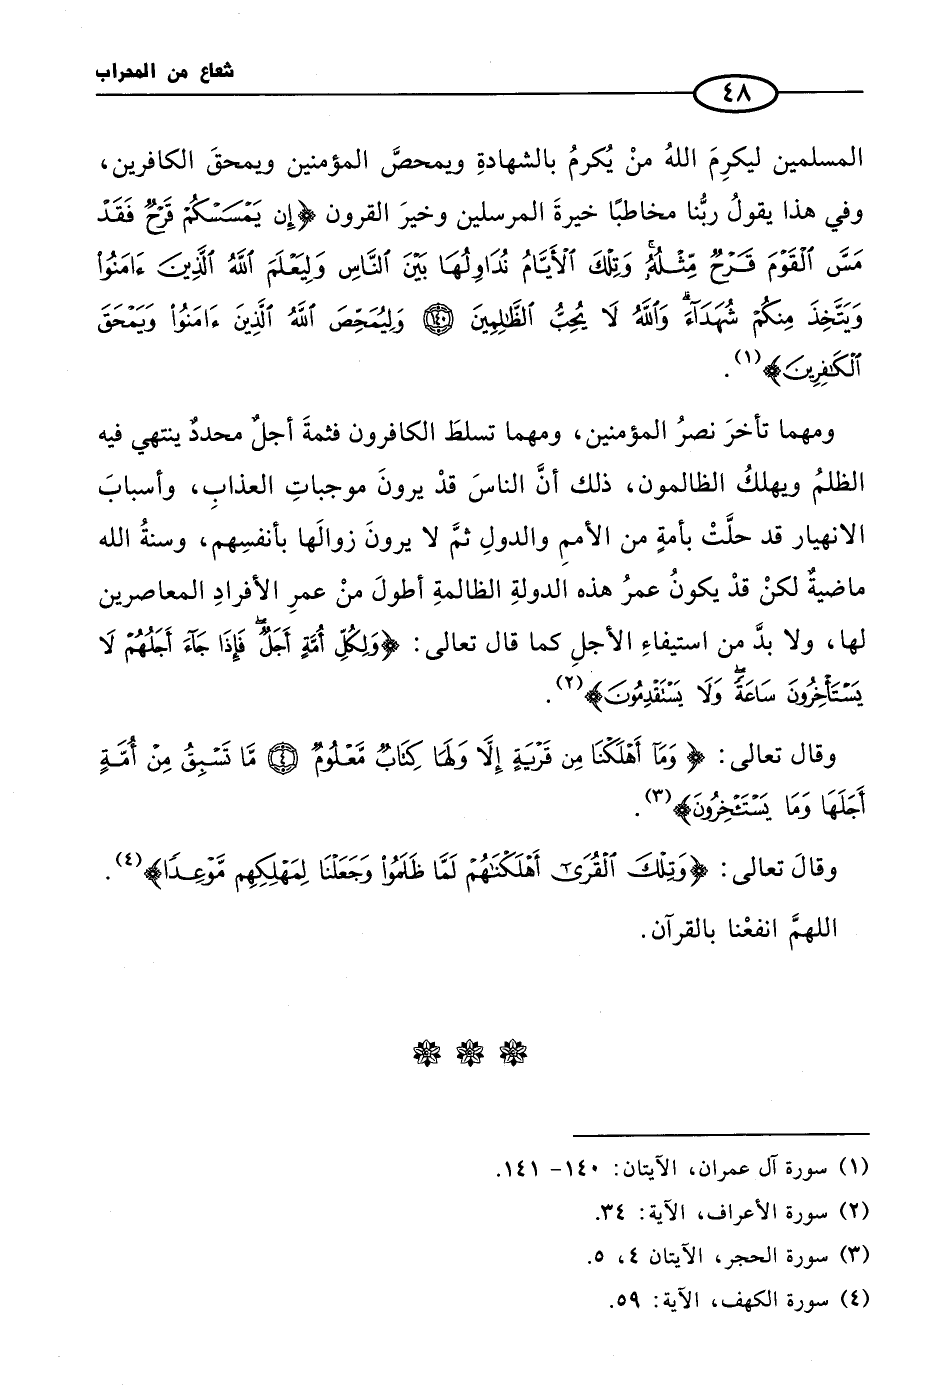 شعاع من المحراب
٤٨
المسلمين ليكرِمَ اللهُ منْ يُكرمُ بالشهادةِ ويمحصَّ المؤمنين ويمحقَ الكافرين،
وفي هذا يقولُ ربُّنا مخاطبًا خيرةَ المرسلين وخيرَ القرون ﴿إِن يَمْسَسْكُمْ قَرْحٌ فَقَدْ
مَسَّ ٱلْقَوْمَ قَرْحٌ مِّثْلُهُۥ ۚ وَتِلْكَ ٱلْأَيَّامُ نُدَاوِلُهَا بَيْنَ ٱلنَّاسِ وَلِيَعْلَمَ ٱللَّهُ ٱلَّذِينَ ءَامَنُوا۟
وَيَتَّخِذَ مِنكُمْ شُهَدَآءَ ۗ وَٱللَّهُ لَا يُحِبُّ ٱلظَّالِمِينَ ﴿١٤٠﴾ وَلِيُمَحِّصَ ٱللَّهُ ٱلَّذِينَ ءَامَنُوا۟ وَيَمْحَقَ
ٱلْكَافِرِينَ﴾(١).
ومهما تأخرَ نصرُ المؤمنين، ومهما تسلطَ الكافرون فثمةَ أجلٌ محددٌ ينتهي فيه
الظلمُ ويهلكُ الظالمون، ذلك أنَّ الناسَ قدْ يرونَ موجباتِ العذابِ، وأسبابَ
الانهيار قد حلَّتْ بأمةٍ من الأممِ والدولِ ثمَّ لا يرونَ زوالَها بأنفسِهم، وسنةُ الله
ماضيةٌ لكنْ قدْ يكونُ عمرُ هذه الدولةِ الظالمةِ أطولَ منْ عمرِ الأفرادِ المعاصرين
لها، ولا بدَّ من استيفاءِ الأجلِ كما قال تعالى: ﴿وَلِكُلِّ أُمَّةٍ أَجَلٌ ۖ فَإِذَا جَآءَ أَجَلُهُمْ لَا
يَسْتَأْخِرُونَ سَاعَةً ۖ وَلَا يَسْتَقْدِمُونَ﴾(٢).
وقال تعالى: ﴿وَمَآ أَهْلَكْنَا مِن قَرْيَةٍ إِلَّا وَلَهَا كِتَابٌ مَّعْلُومٌ ﴿٤﴾ مَّا تَسْبِقُ مِنْ أُمَّةٍ
أَجَلَهَا وَمَا يَسْتَـْٔخِرُونَ﴾(٣).
وقالَ تعالى: ﴿وَتِلْكَ ٱلْقُرَىٰٓ أَهْلَكْنَاهُمْ لَمَّا ظَلَمُوا۟ وَجَعَلْنَا لِمَهْلِكِهِم مَّوْعِدًا﴾(٤).
اللهمَّ انفعْنا بالقرآن.
(١) سورة آل عمران، الآيتان: ١٤٠- ١٤١.
(٢) سورة الأعراف، الآية: ٣٤.
(٣) سورة الحجر، الآيتان ٤، ٥.
(٤) سورة الكهف، الآية: ٥٩.